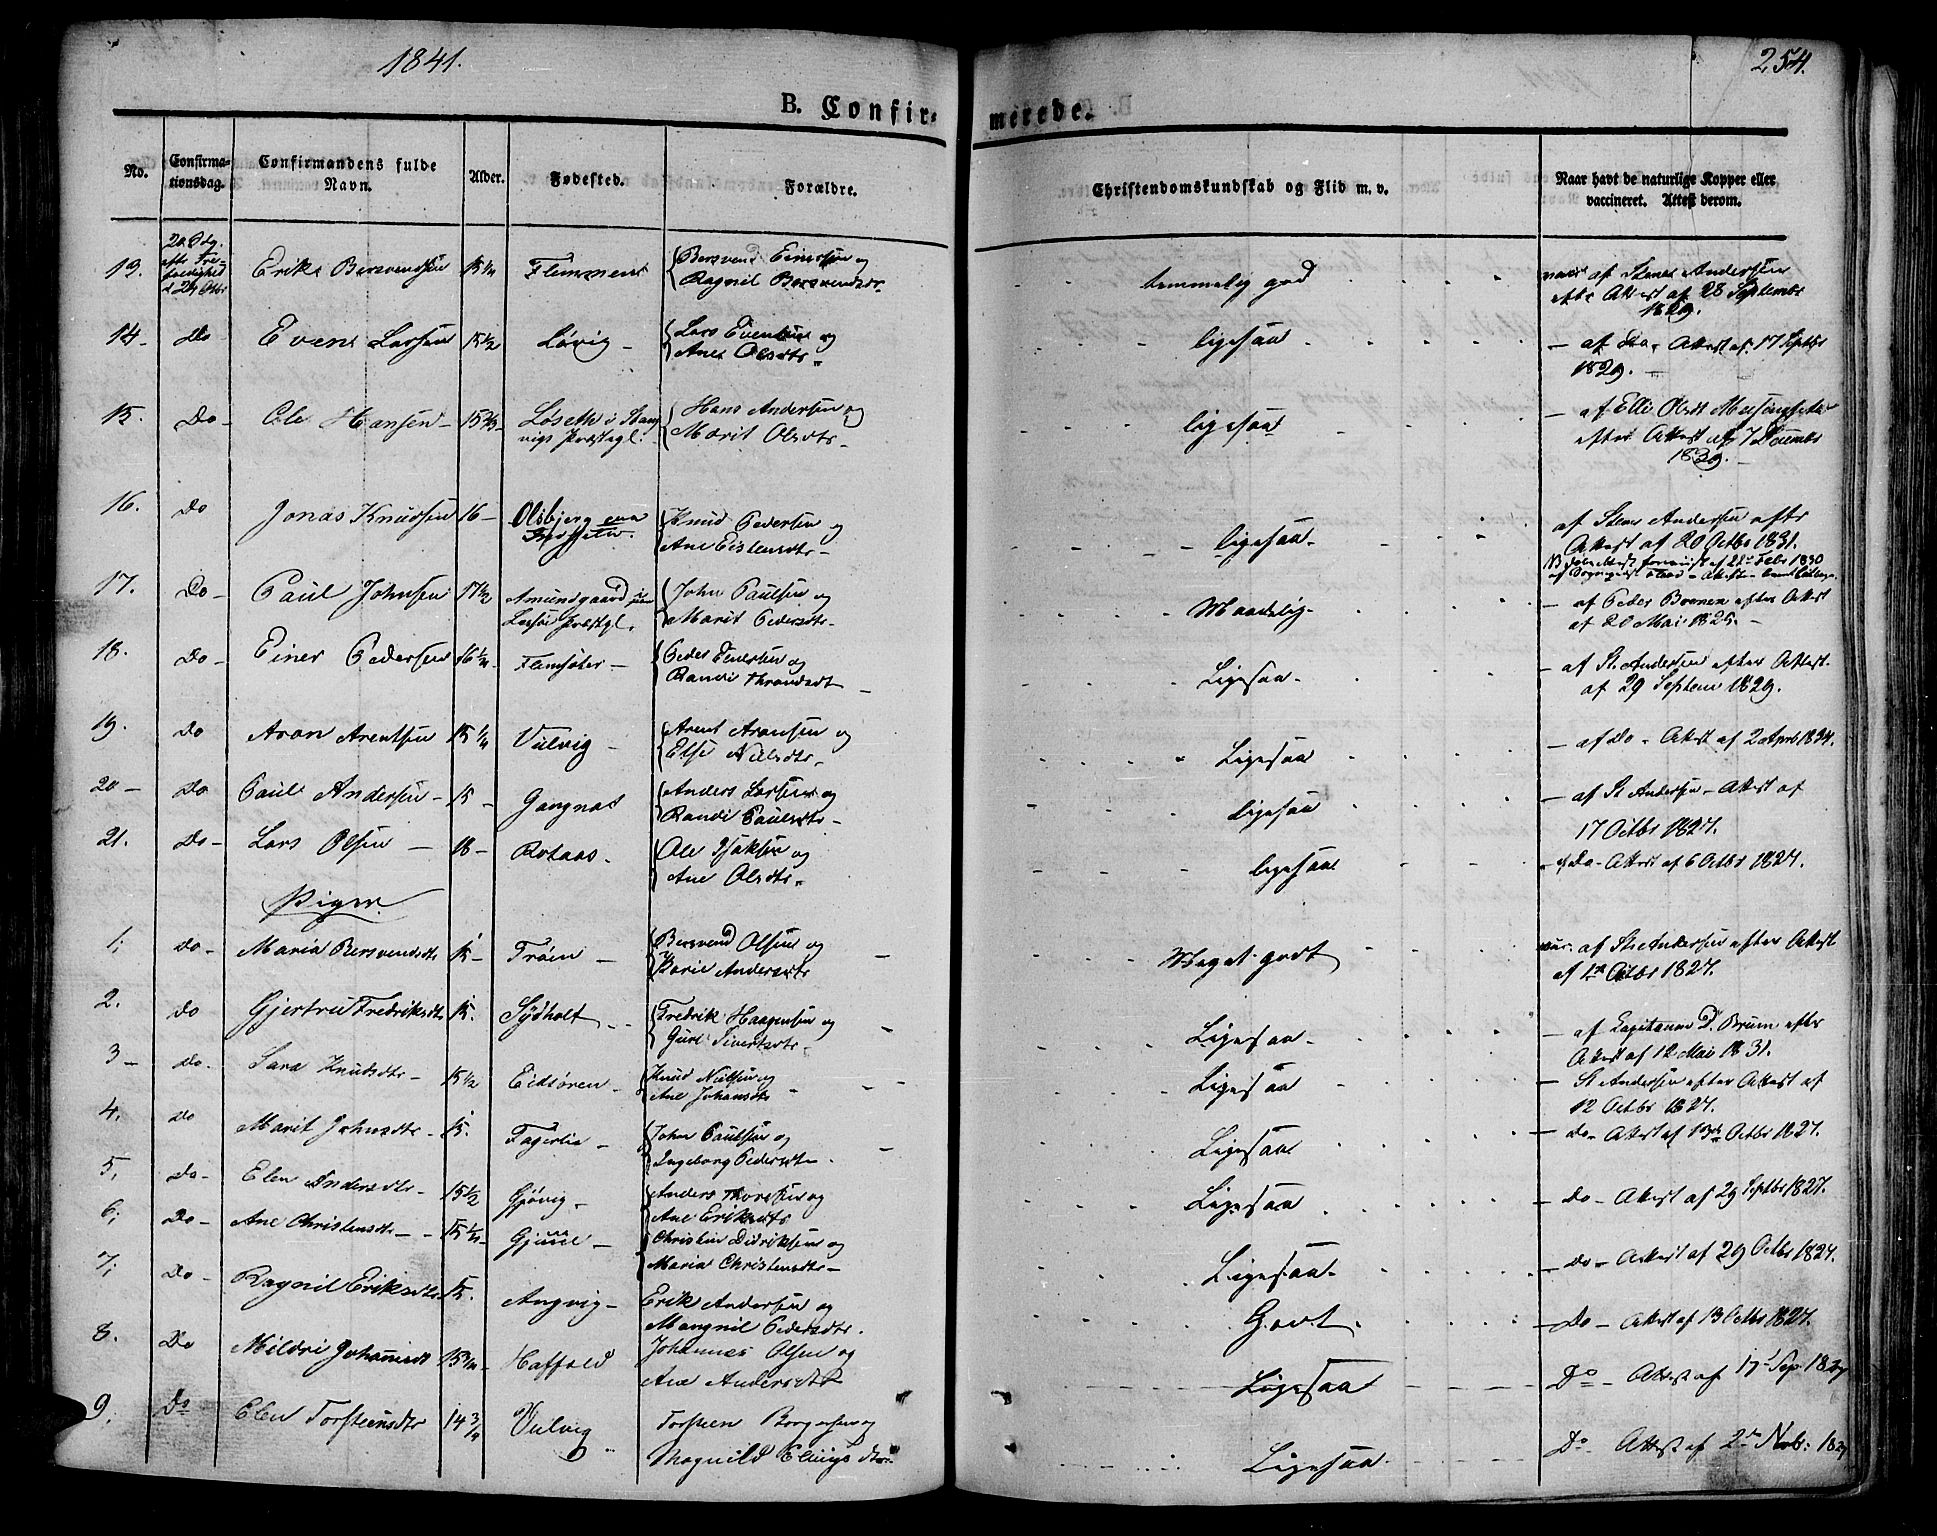 1841.
254.
B. Confir-
merede.
No.
Confirma-
tionsdag.
Confirmandens fulde
Navn.
Alder.
Fødested.
Forældre.
Christendomskundskab og Flid m. v.
Naar havt de naturlige Kopper eller
vaccineret. Attest derom.
13. Erik Bersvendsen 15 1/4 Bersvend Einersen og
Ragnil Bersvendsdtr. temmelig god af Stener Andersen
Attest af 28 Septembr
1829.
14 - Do Even Larsen 15 1/2 Løvig - Lars Evensen og
Ane Olsdtr. ligesaa - af Do. Attest af 17 Septbr
1829.
15. Do - Ole Hansen - 15 Løseth i Stang-
vigs Præstegl. Hans Andersen og
Marit Olsdtr - ligesaa - af Elli Olsdt
efter Attest af 7 Decembr
1839.
16. Do Jonas Knudsen 16 - Olsbjerg Knud Pedersen og
Ane Eistensdtr - ligesaa - af Stener Andersen eftr
Attest af 20 Octbr 1831.
17. Do - Paul Johnsen 17 1/2 Amundgaard
Præstgl. John Paulsen og
Marit Pedersdtr - Maadelig - - af Peder efter Attest
af 20 Mai 1825. -
18. Do - Einer Pedersen 16 1/4 Flemsæter - Peder Einersen og
Randi Throndsdt - Ligesaa - - af St. Andersen efter Attest
af 29 Septem 1829.
19. Do Aron Arentsen 15 1/4 Vulvig - Arent Aronsen og
Else Nielsdtr. Ligesaa - af Do - Attest af 2 April 1834.
20 - Do Paul Andersen - 15 - Gangnæs Anders Larsen og
Randi Paulsdtr - ligesaa - af St Andersen - Attest af
17 Octbr 1827.
21. Do - Lars Olsen - 18 - Rotaas - Ole Isaksen og
Ane Olsdtr - ligesaa - af Do - Attest af 6 Octbr 1827.
Piger
1. Do - Maria Bersvendsdtr 15 - Trøen - Bersvend Olsen og
Karie Andersdtr - Meget godt af St. Andersen efter Attest
af 1st Octbr 1827.
2. Do Gjertru Fredriksdtr 15. Sydholt - Fredrik Haagensen og
Guri Sivertsdtr. - Ligesaa - - af Capitainn D. Bruun efter
Attest af 12 Mai 1831.
3 - Do - Sara Knudsdtr - 15 1/2 Eidsøren - Knud Nielsen og
Ane Johansdtr - Ligesaa - St Andersen efter Attest af
12 Octbr 1827.
4. Do Marit Johnsdtr - 15. Fagerlie - John Paulsen og
Ingeborg Pedersdtr - Ligesaa - Do - Attest af 13de Octbr 1827.
5. Do - Elen Andersdtr - 15 1/2 Gjøvig - Anders Thoresen og
Ane Eriksdtr Ligesaa - Do - Attest af 29 Septbr 1827.
6. Do - Ane Christensdtr - 15 1/4 - Christen Didriksen og
Maria Christensdtr - Ligesaa - - Do - Attest af 29 Octbr 1827.
7. Do - Ragnil Eriksdtr 15. Angvig - Erik Andersen og
Mangnil Pedersdtr. Godt - - Do - Attest af 13 Octbr 1827.
8. Do Mildri Johannesdt 15 1/4 - Haffold Johannes Olsen og
Ane Andersdtr Ligesaa Do - Attest af 17 Sep: 1827
9. Do Elen Torsteinsdtr 14 3/4 Vulvig Torsteen og
Ragnild Ligesaa - Do - Attest af 2de Novbr: 1827